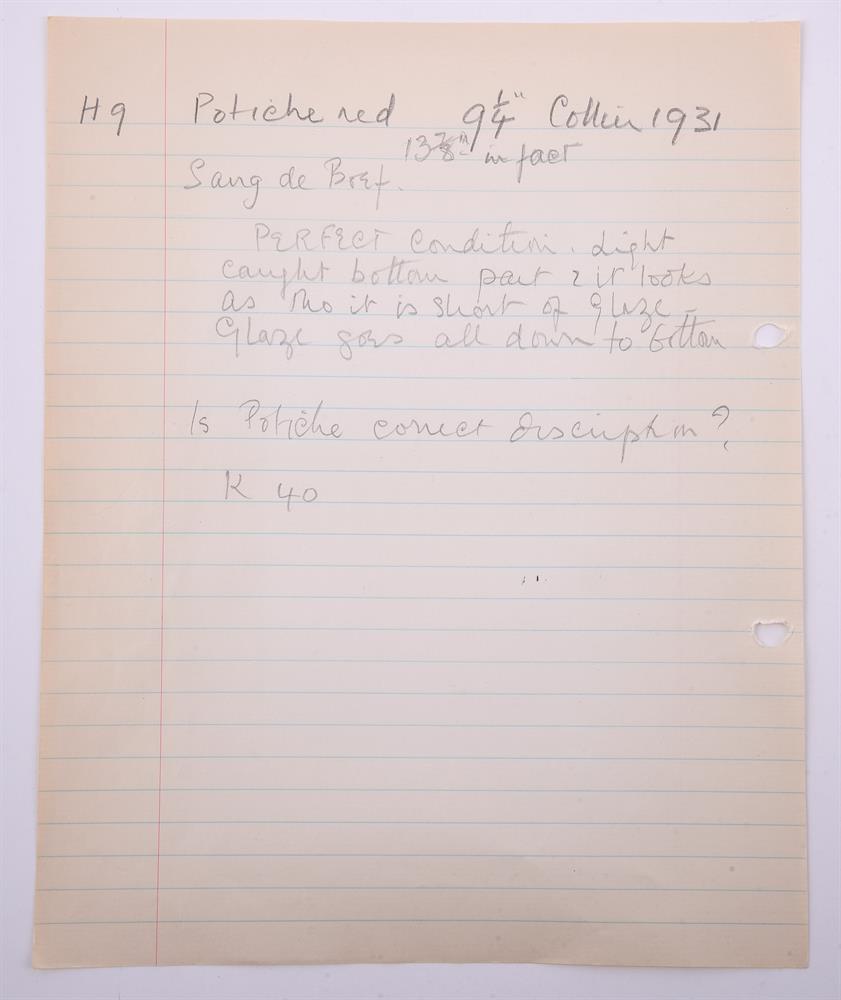 H9 Potiche red 9 1/4" Collin 1931
13 7/8 in in fact
Sang de Boef.
PERFECT condition. Light
caught bottom part & it looks
as tho it is short of glaze -
Glaze goes all down to bottom
Is Potiche correct discription?
K 40